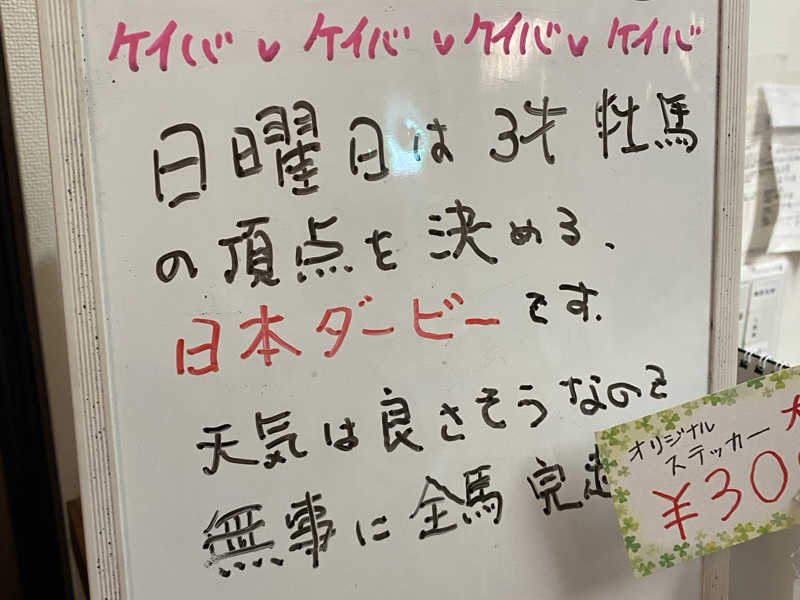 ケイバ v ケイバ v ケイバ v ケイバ
日曜日は 3才 牡馬
の頂点を決める、
日本ダービーです。
天気は良さそうなので
無事に全馬 完走
オリジナル
ステッカー
¥30